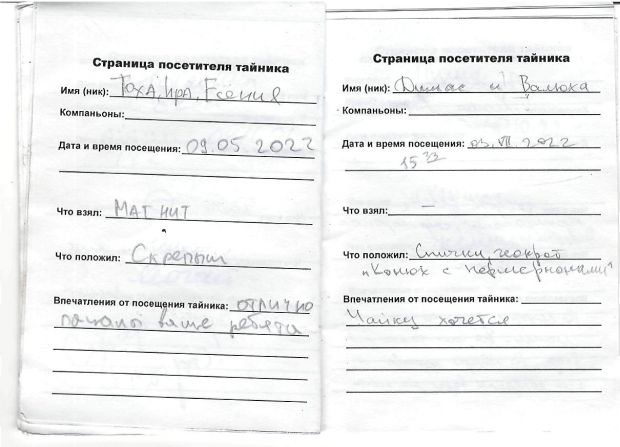 Страница посетителя тайника
Имя (ник): Тоха, Ира, Есения
Компаньоны:
Дата и время посещения: 09.05 2022
Что взял: Магнит
Что положил: Скрепыш
Впечатления от посещения тайника: отлично
ваше ребята
Страница посетителя тайника
Имя (ник): Димас и Валюха
Компаньоны:
Дата и время посещения: 03. VII. 2022
15 33
Что взял: –
Что положил: Спички, геокрет
"Конюх с
Впечатления от посещения тайника:
Чайку хочется